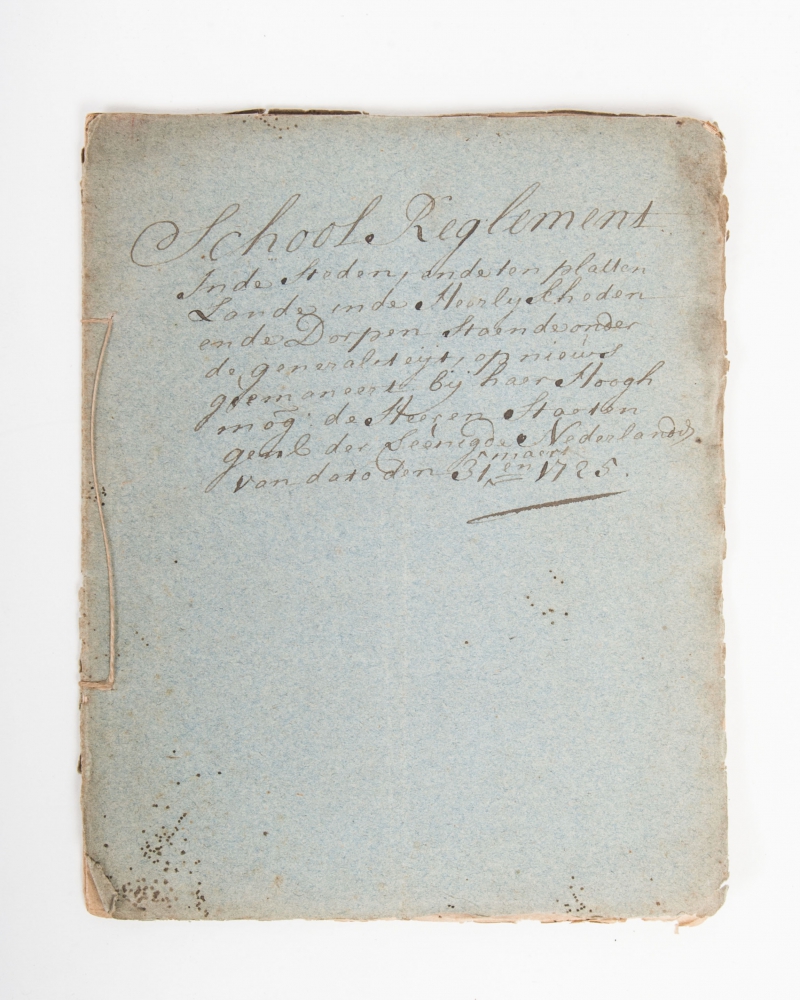 School Reglement
Inde Steden, ende ten platten
Lande inde Heerlykheden
ende Dorpen Staende onder
de generaliteyt, op nieuws
geemaneert bij haer Hoogh
mog: de Heeren Staeten
genl der Veenigde Nederlanden
van dato den 31en maert 1725.